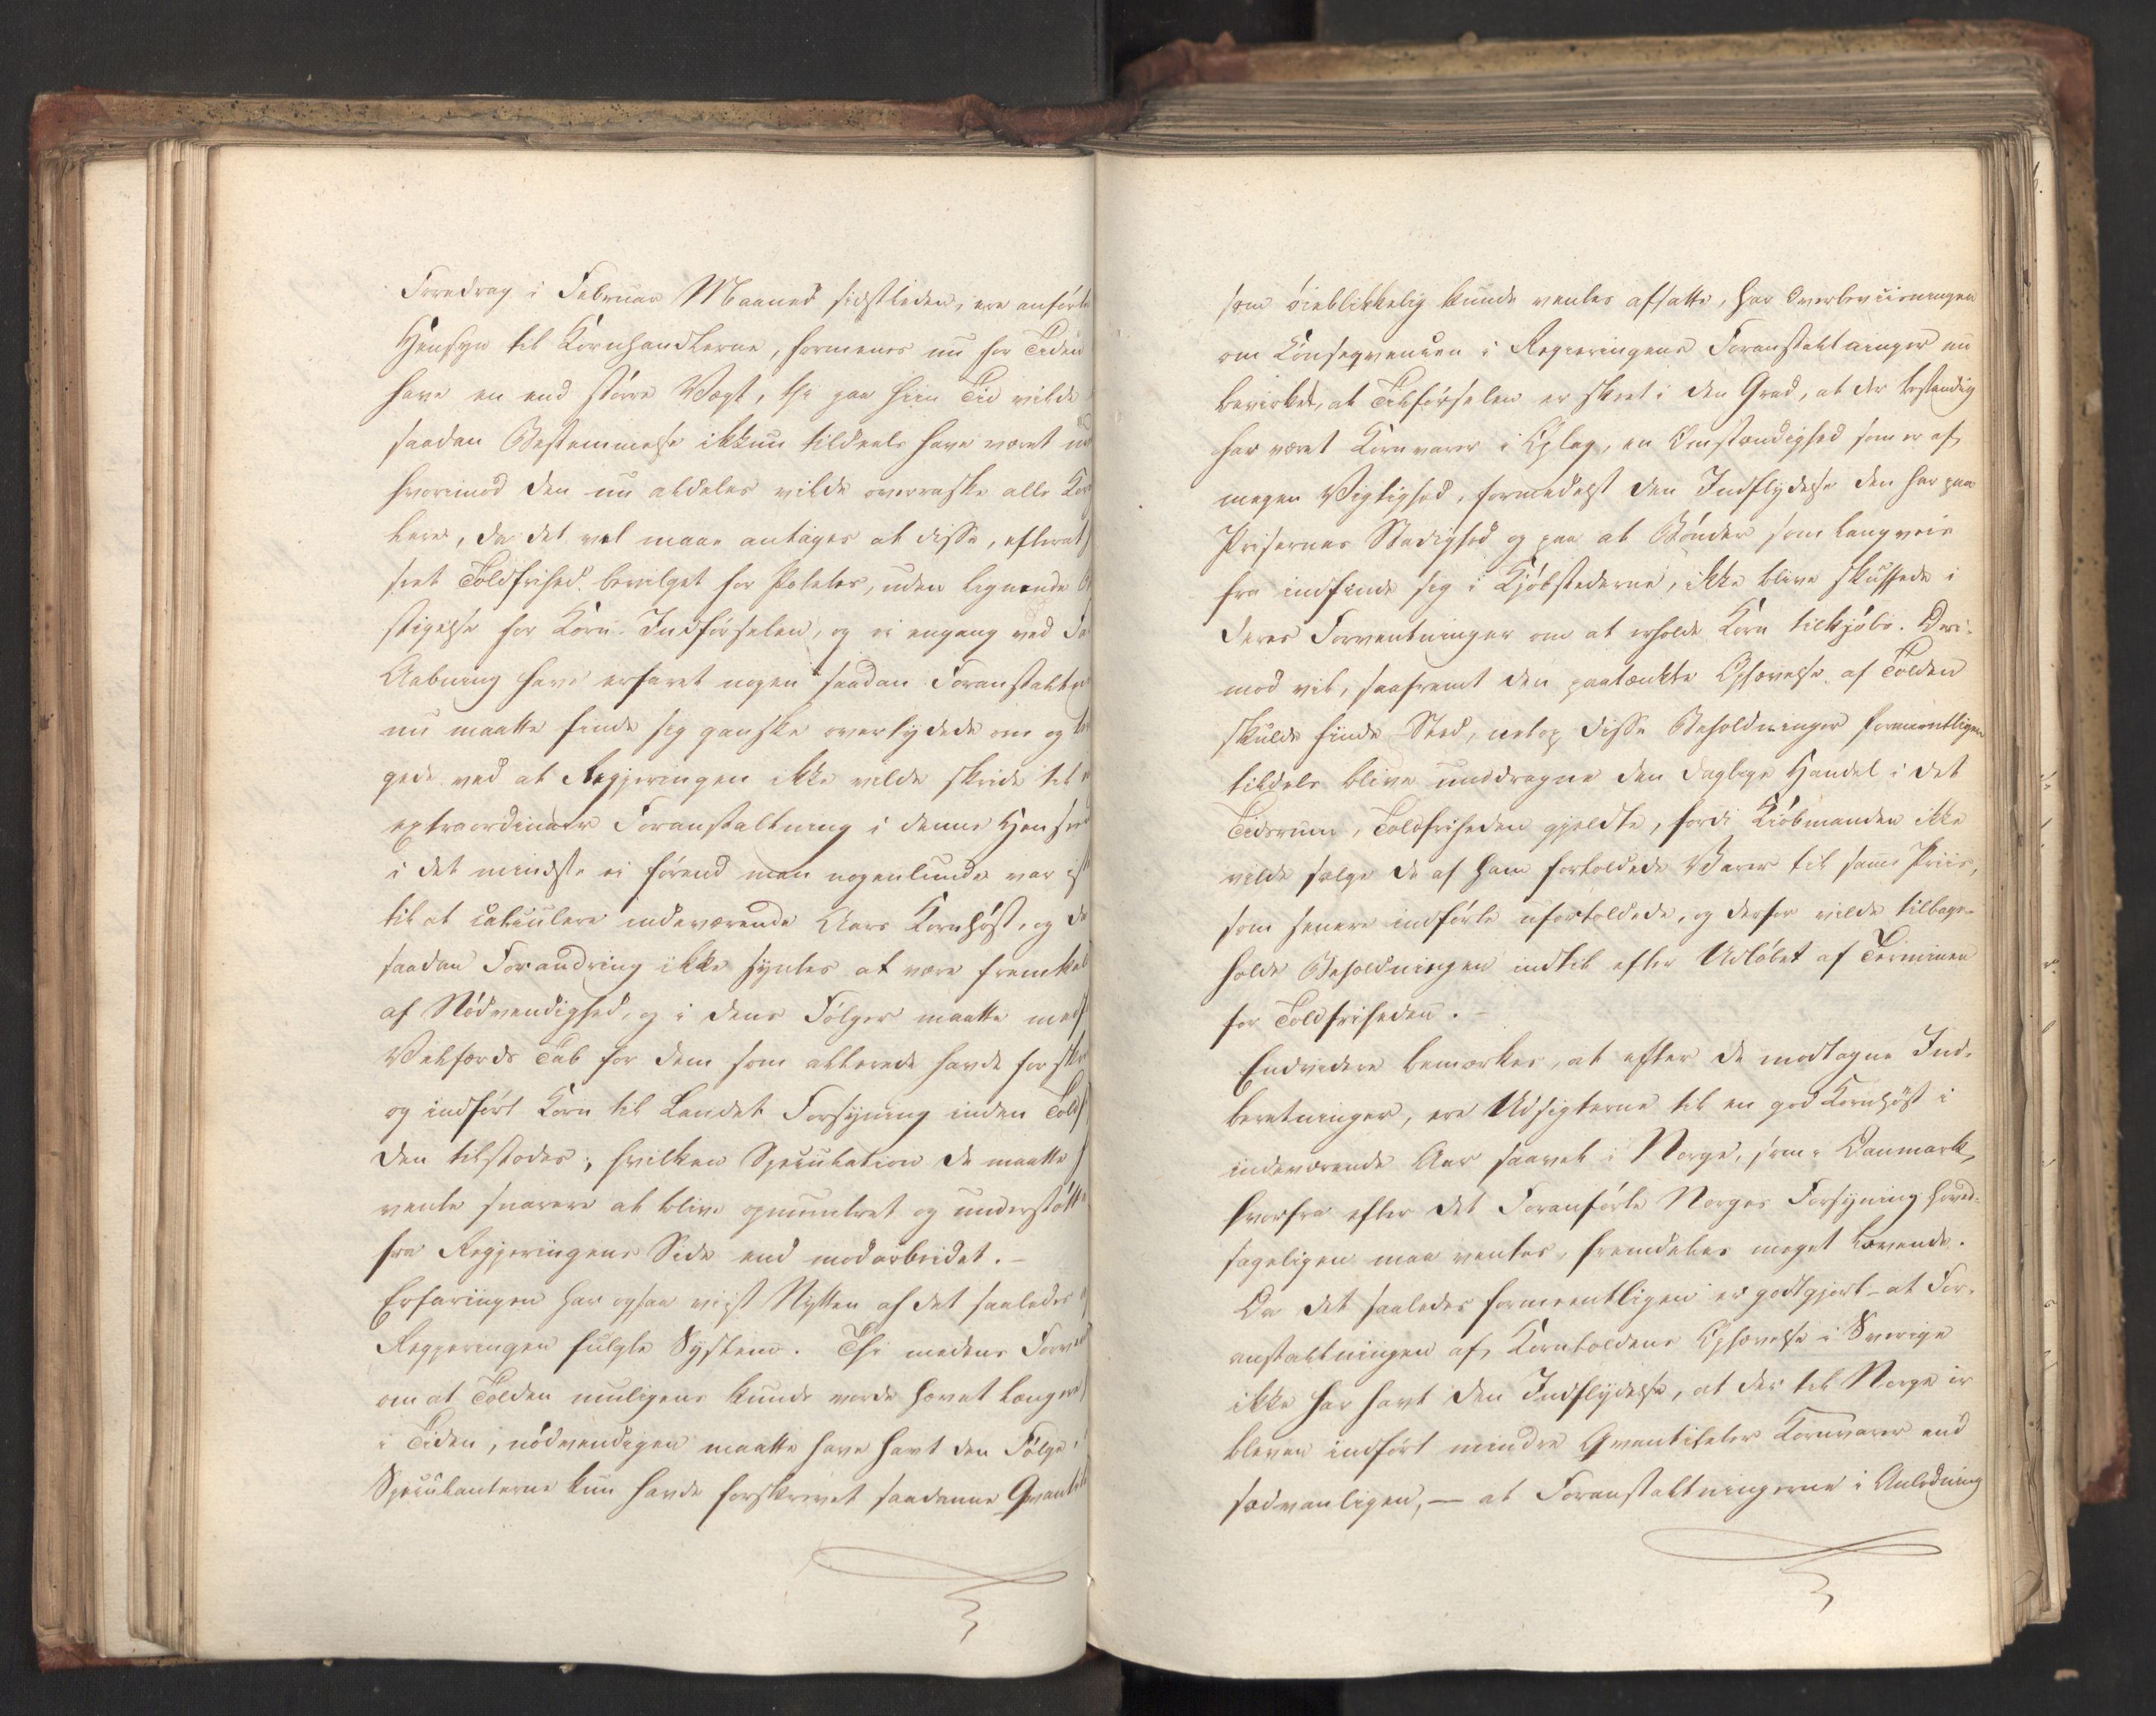 Foredrag i Februar Maaned sidstleden, ere anførte
Hensyn til Kornhandlerne, formenes nu for Tiden
have en end større Vægt, thi paa hiin Tid vilde
saadan Bestemmelse ikkun tildeels have været
hvorimod den nu aldeles vilde overraske alle
da det vel maae antages at disse, efterat
seet Toldfrihed bevilget for Poteter, uden lignende
stigelse for Korn-Indførselen, og ei engang ved
Aabning have erfaret nogen saadan
nu maatte finde sig ganske overtydede om og
gede ved at Regjeringen ikke vilde skride til
extraordinair Foranstaltning i denne
i det mindste ei førend man nogenlunde var
til at calculere indeværende Aars Kornhøst, og
saadan Forandring ikke syntes at være
af Nødvendighed, og i dens Følger maatte
Velfærds Tab for dem som allerede havde
og indført Korn til Landets Forsyning inden
den tilstodes; hvilken Speculation de maatte
vente snarere at blive opmuntret og understøttet
fra Regjeringens Side end modarbeidet.-
Erfaringen har ogsaa viist Nytten af det saaledes
Regjeringen fulgte System. Thi medens
om at Tolden muligens kunde vorde hævet længere
i Tiden, nødvendigen maatte have havt den Følge,
Speculanterne kun havde forskrevet saadanne
som øieblikkelig kunde ventes afsatte, har Overbeviisningen
om Conseqvencen i Regieringens Foranstaltninger nu
bevirket, at Tilførselen er skeet i den Grad, at der bestandig
har været Kornvarer i Oplag, en Omstændighed som er af
megen Vigtighed, formedelst den Indflydelse den har paa
Prisernes Stadighed og paa at Bønder som langveis
fra indfinde sig i Kjøbstæderne, ikke blive skuffede i
deres Forventninger om at erholde Korn tilkjøbs. Deri-
mod vil, saafremt den paatænkte Ophævelse af Tolden
skulde finde Sted, netop disse Beholdninger formeentligen
tildels blive unddragne den daglige Handel i det
Tidsrum, Toldfriheden gjeldte, fordi Kiøbmanden ikke
vilde sælge de af ham fortoldede Varer til samme Priis,
som senere indførte ufortoldede, og derfor vilde tilbage-
holde Beholdningen indtil efter Udløbet af Terminen
for Toldfriheden.-
Endvidere bemærkes, at efter de modtagne Ind-
beretninger, ere Udsigterne til en god Kornhøst i
indeværende Aar saavel i Norge, som i Danmark,
hvorfra efter det Foranførte Norges Forsyning hoved-
sageligen maa ventes, fremdeles meget lovende.
Da det saaledes formeentligen er godtgjort - at For-
anstaltningen af Korntoldens Ophævelse i Sverige
ikke har havt den Indflydelse, at der til Norge er
bleven indført mindre Qvantiteter Kornvarer end
sædvanligen, — at Foranstaltningerne i Anledning